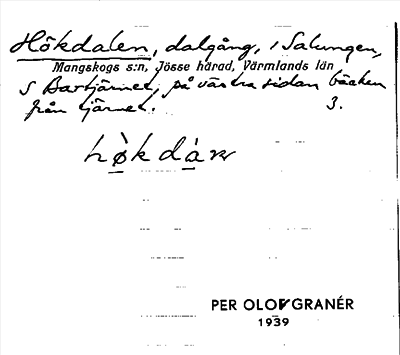 Hökdalen, dalgång, i Salungen,
Mangskogs s:n, Jösse härad, Värmlands län
S Bastjärnet, på västra sidan bäcken
från tjärnet. 3.
PER OLOF GRANÉR
1939